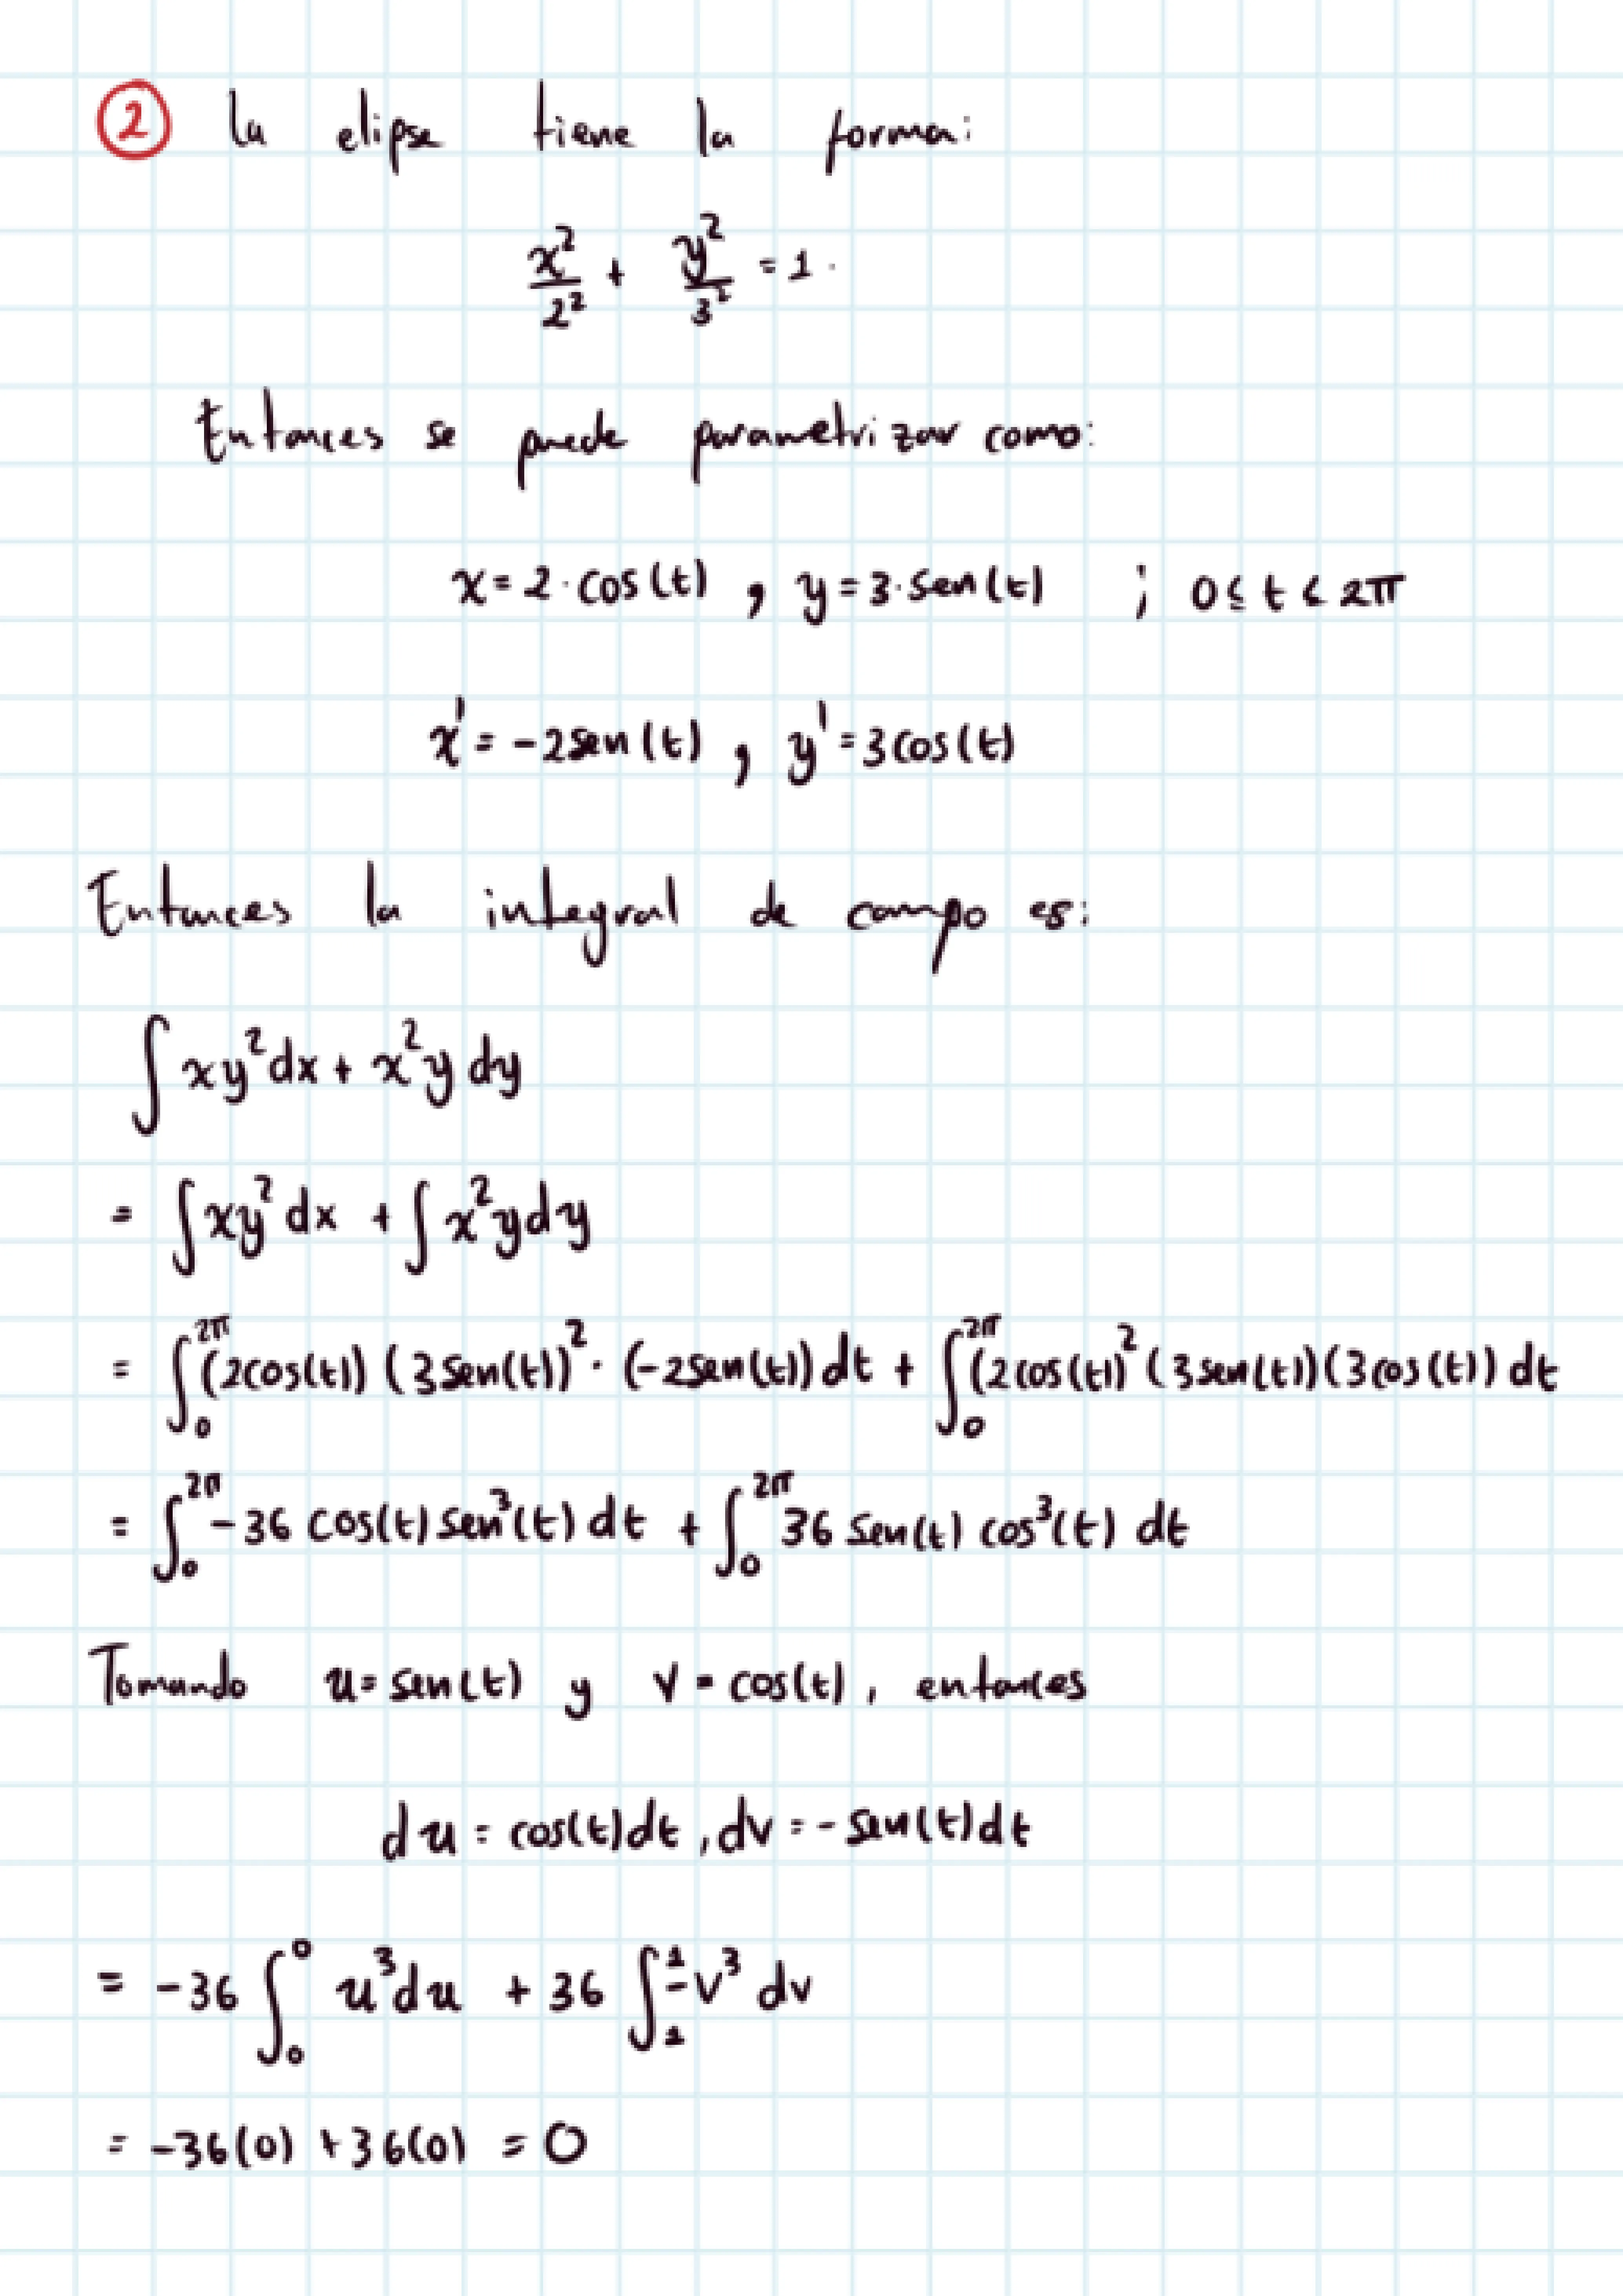 ② La elipse tiene la forma:
x²/2² + y²/3² = 1.
Entonces se puede parametrizar como:
x = 2·cos(t) , y = 3·sen(t) ; 0 ≤ t < 2π
x' = -2sen(t) , y' = 3cos(t)
Entonces la integral de campo es:
∫ xy²dx + x²y dy
= ∫xy²dx + ∫x²ydy
= ∫₀^2π (2cos(t)) (3sen(t))² · (-2sen(t)) dt + ∫₀^2π (2cos(t)² (3sen(t)) (3cos(t)) dt
= ∫₀^2π -36 cos(t) sen³(t) dt + ∫₀^2π 36 sen(t) cos³(t) dt
Tomando u = sen(t) y v = cos(t), entonces
du = cos(t)dt, dv = -sen(t)dt
= -36 ∫₀^0 u³du + 36 ∫₁^1 -v³ dv
= -36(0) + 36(0) = 0